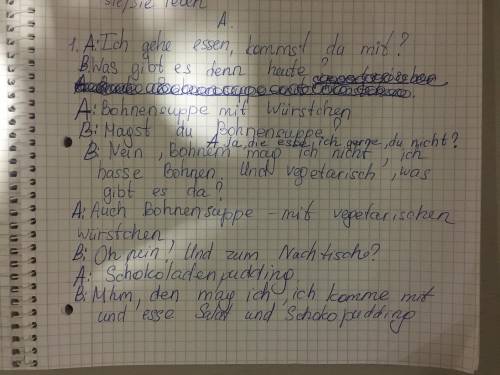 sie/sie leben
A.
1. A: Ich gehe essen, kommst du mit?
B: Was gibt es denn heute?
A: Bohnensuppe mit Würstchen
B: Magst du Bohnensuppe?
A: Ja, die esse ich gerne, du nicht?
B: Nein, Bohnem mag ich nicht, ich
hasse Bohnen. Und vegetarisch, was
gibt es da?
A: Auch Bohnensuppe – mit vegetarischen
würstchen
B: Oh nein! Und zum Nachtische?
A: Schokoladenpudding
B: Mhm, den mag ich, ich komme mit
und esse Salat und Schokopudding